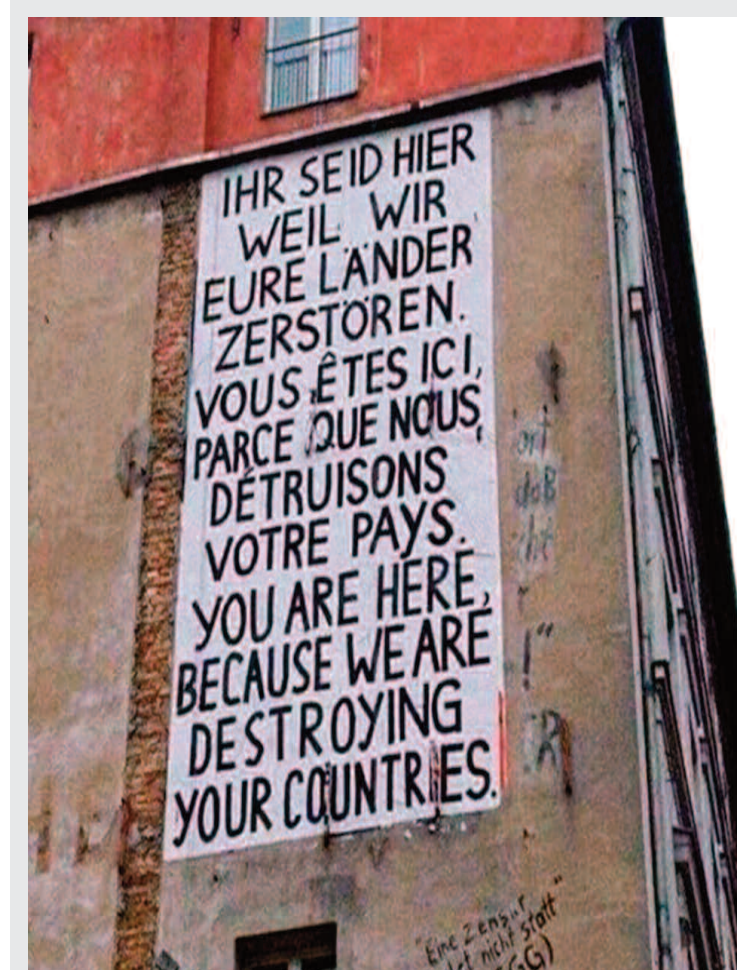 IHR SEID HIER
WEIL WIR
EURE LÄNDER
ZERSTÖREN.
VOUS ÊTES ICI,
PARCE QUE NOUS
DÉTRUISONS
VOTRE PAYS.
YOU ARE HERE,
BECAUSE WE ARE
DESTROYING
YOUR COUNTRIES.
"Eine Zensur
nicht statt"